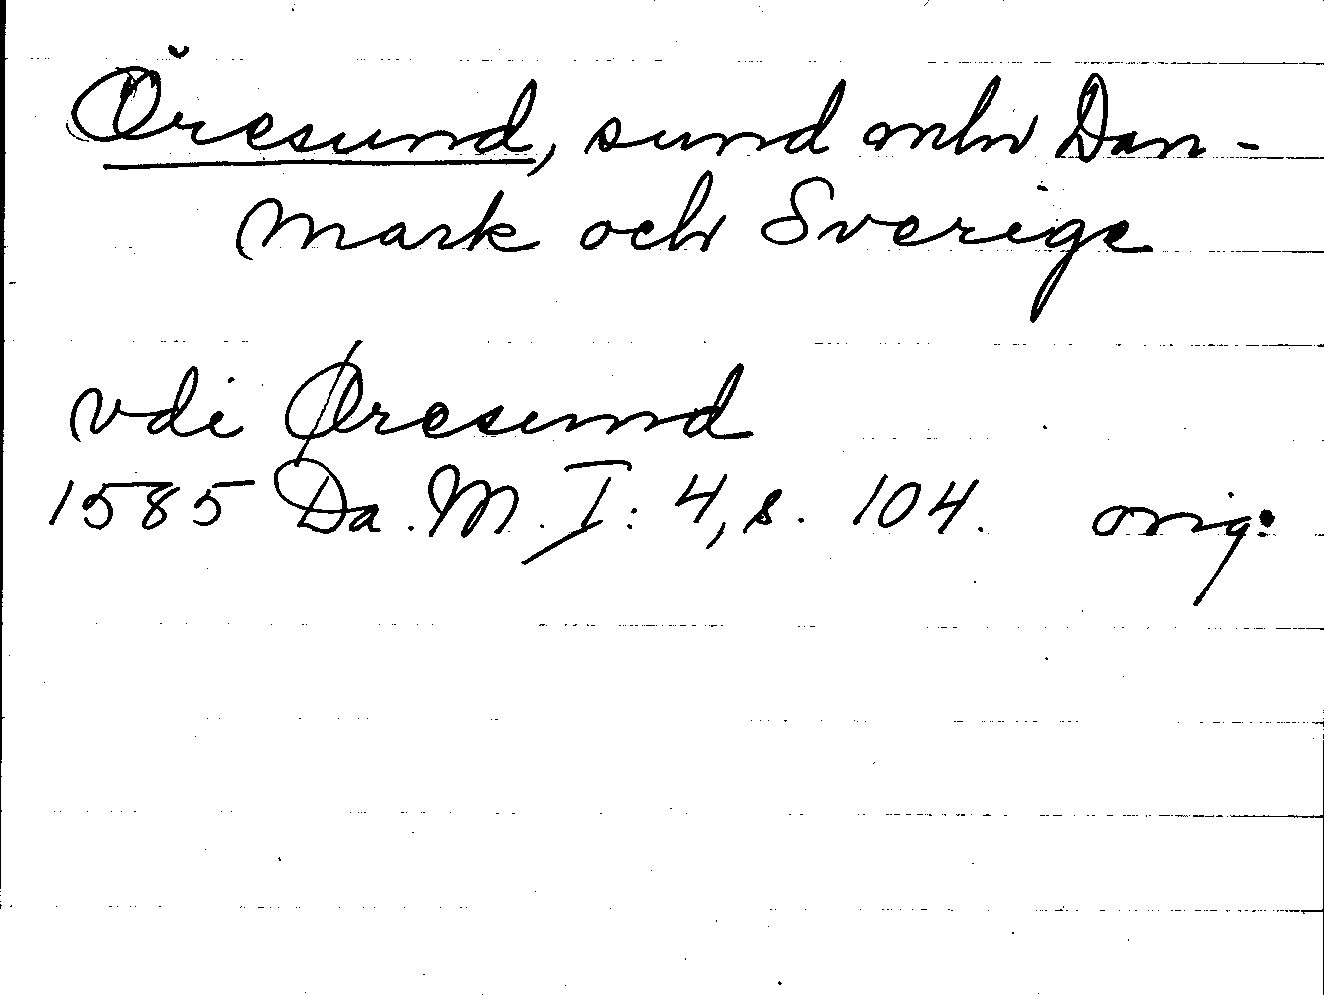 Öresund, sund mln Dan-
mark och Sverige
vdi Øresund
1585 Da. M. I: 4, s. 104. orig: